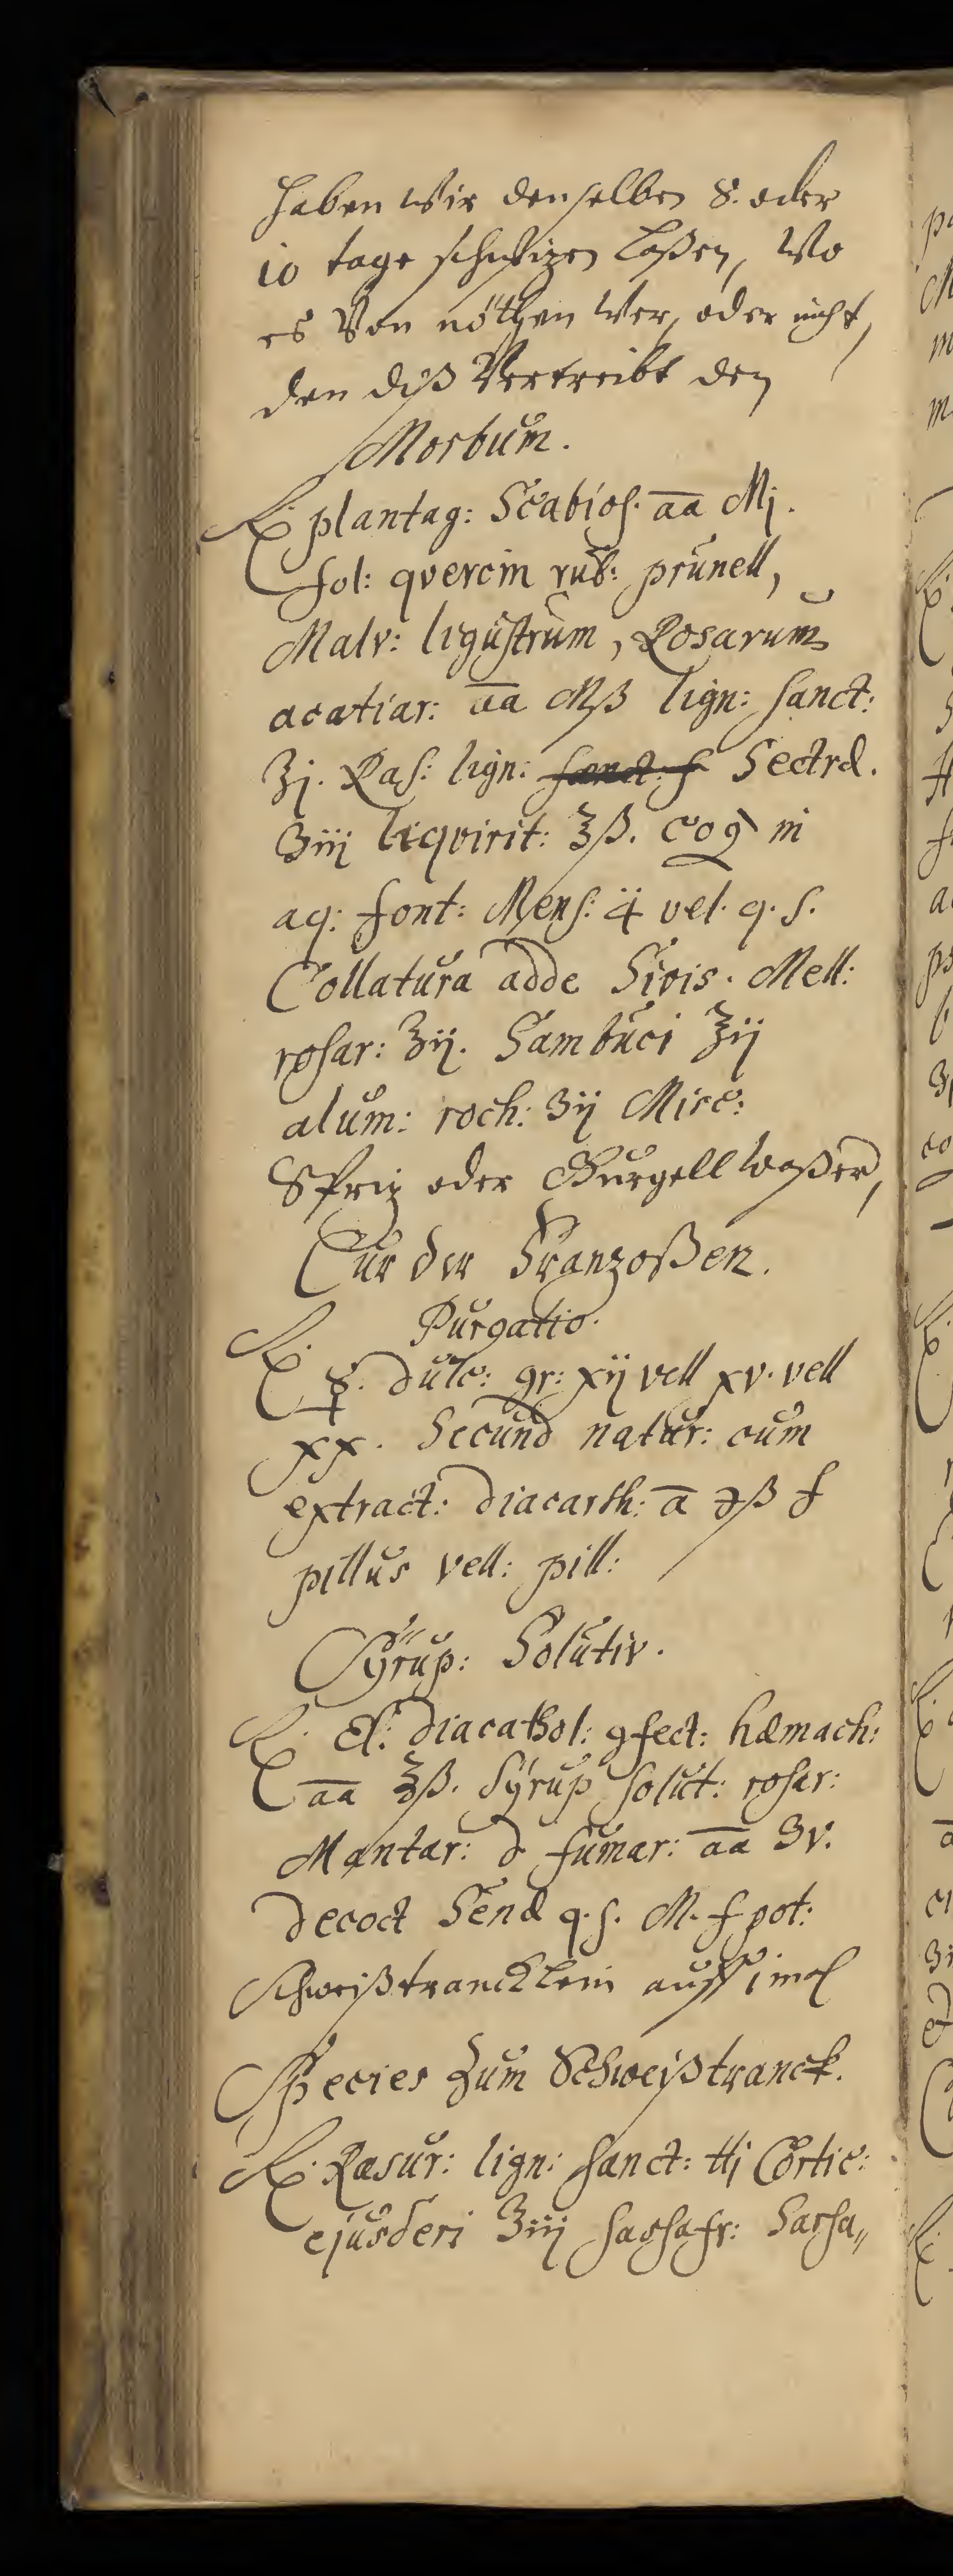 haben wir denselben 8. oder
10 tage schwizen laßen, Wo
es Von nöthen wer, oder nicht,
den diß Vertreibt den
Morbum.
℞. plantag: Scabios. aa Mj.
fol: qvercin rub: prunell,
Malv: ligustrum, Rosarum
acatiar: aa Mß lign: sanct:
℥j. Ras: lign: Sectrd.
ʒiij liqvirit: ℥ß. coq in
aq: font: Mens: ij vel. q. s.
Collatura adde Sivis. Mell:
rosar: ℥ij. Sambuci ℥ij
alum: roch: ʒij Misc:
Spriz oder Gurgell waßer,
Cur der Franzoßen.
Purgatio.
℞. ☿. dulc: gr: xij vell xv. vell
xx. Secund natur: cum
extract: diacarth: a ℈ß f
pillus vell: pill:
Syrup: Solutiv.
℞. El: diacathol: 9fect: hamach:
aa ℥ß. Syrup solut: rosar:
Mantar: d fumar: aa ʒv.
decoct Send q. s. M. f pot:
Schweißtrancklein auff 1 mal
Species zum Schweißtranck.
℞. Rasur: lign: sanct: ℔j Cortic:
ejusderi ℥iij sassafr: Sarsa„